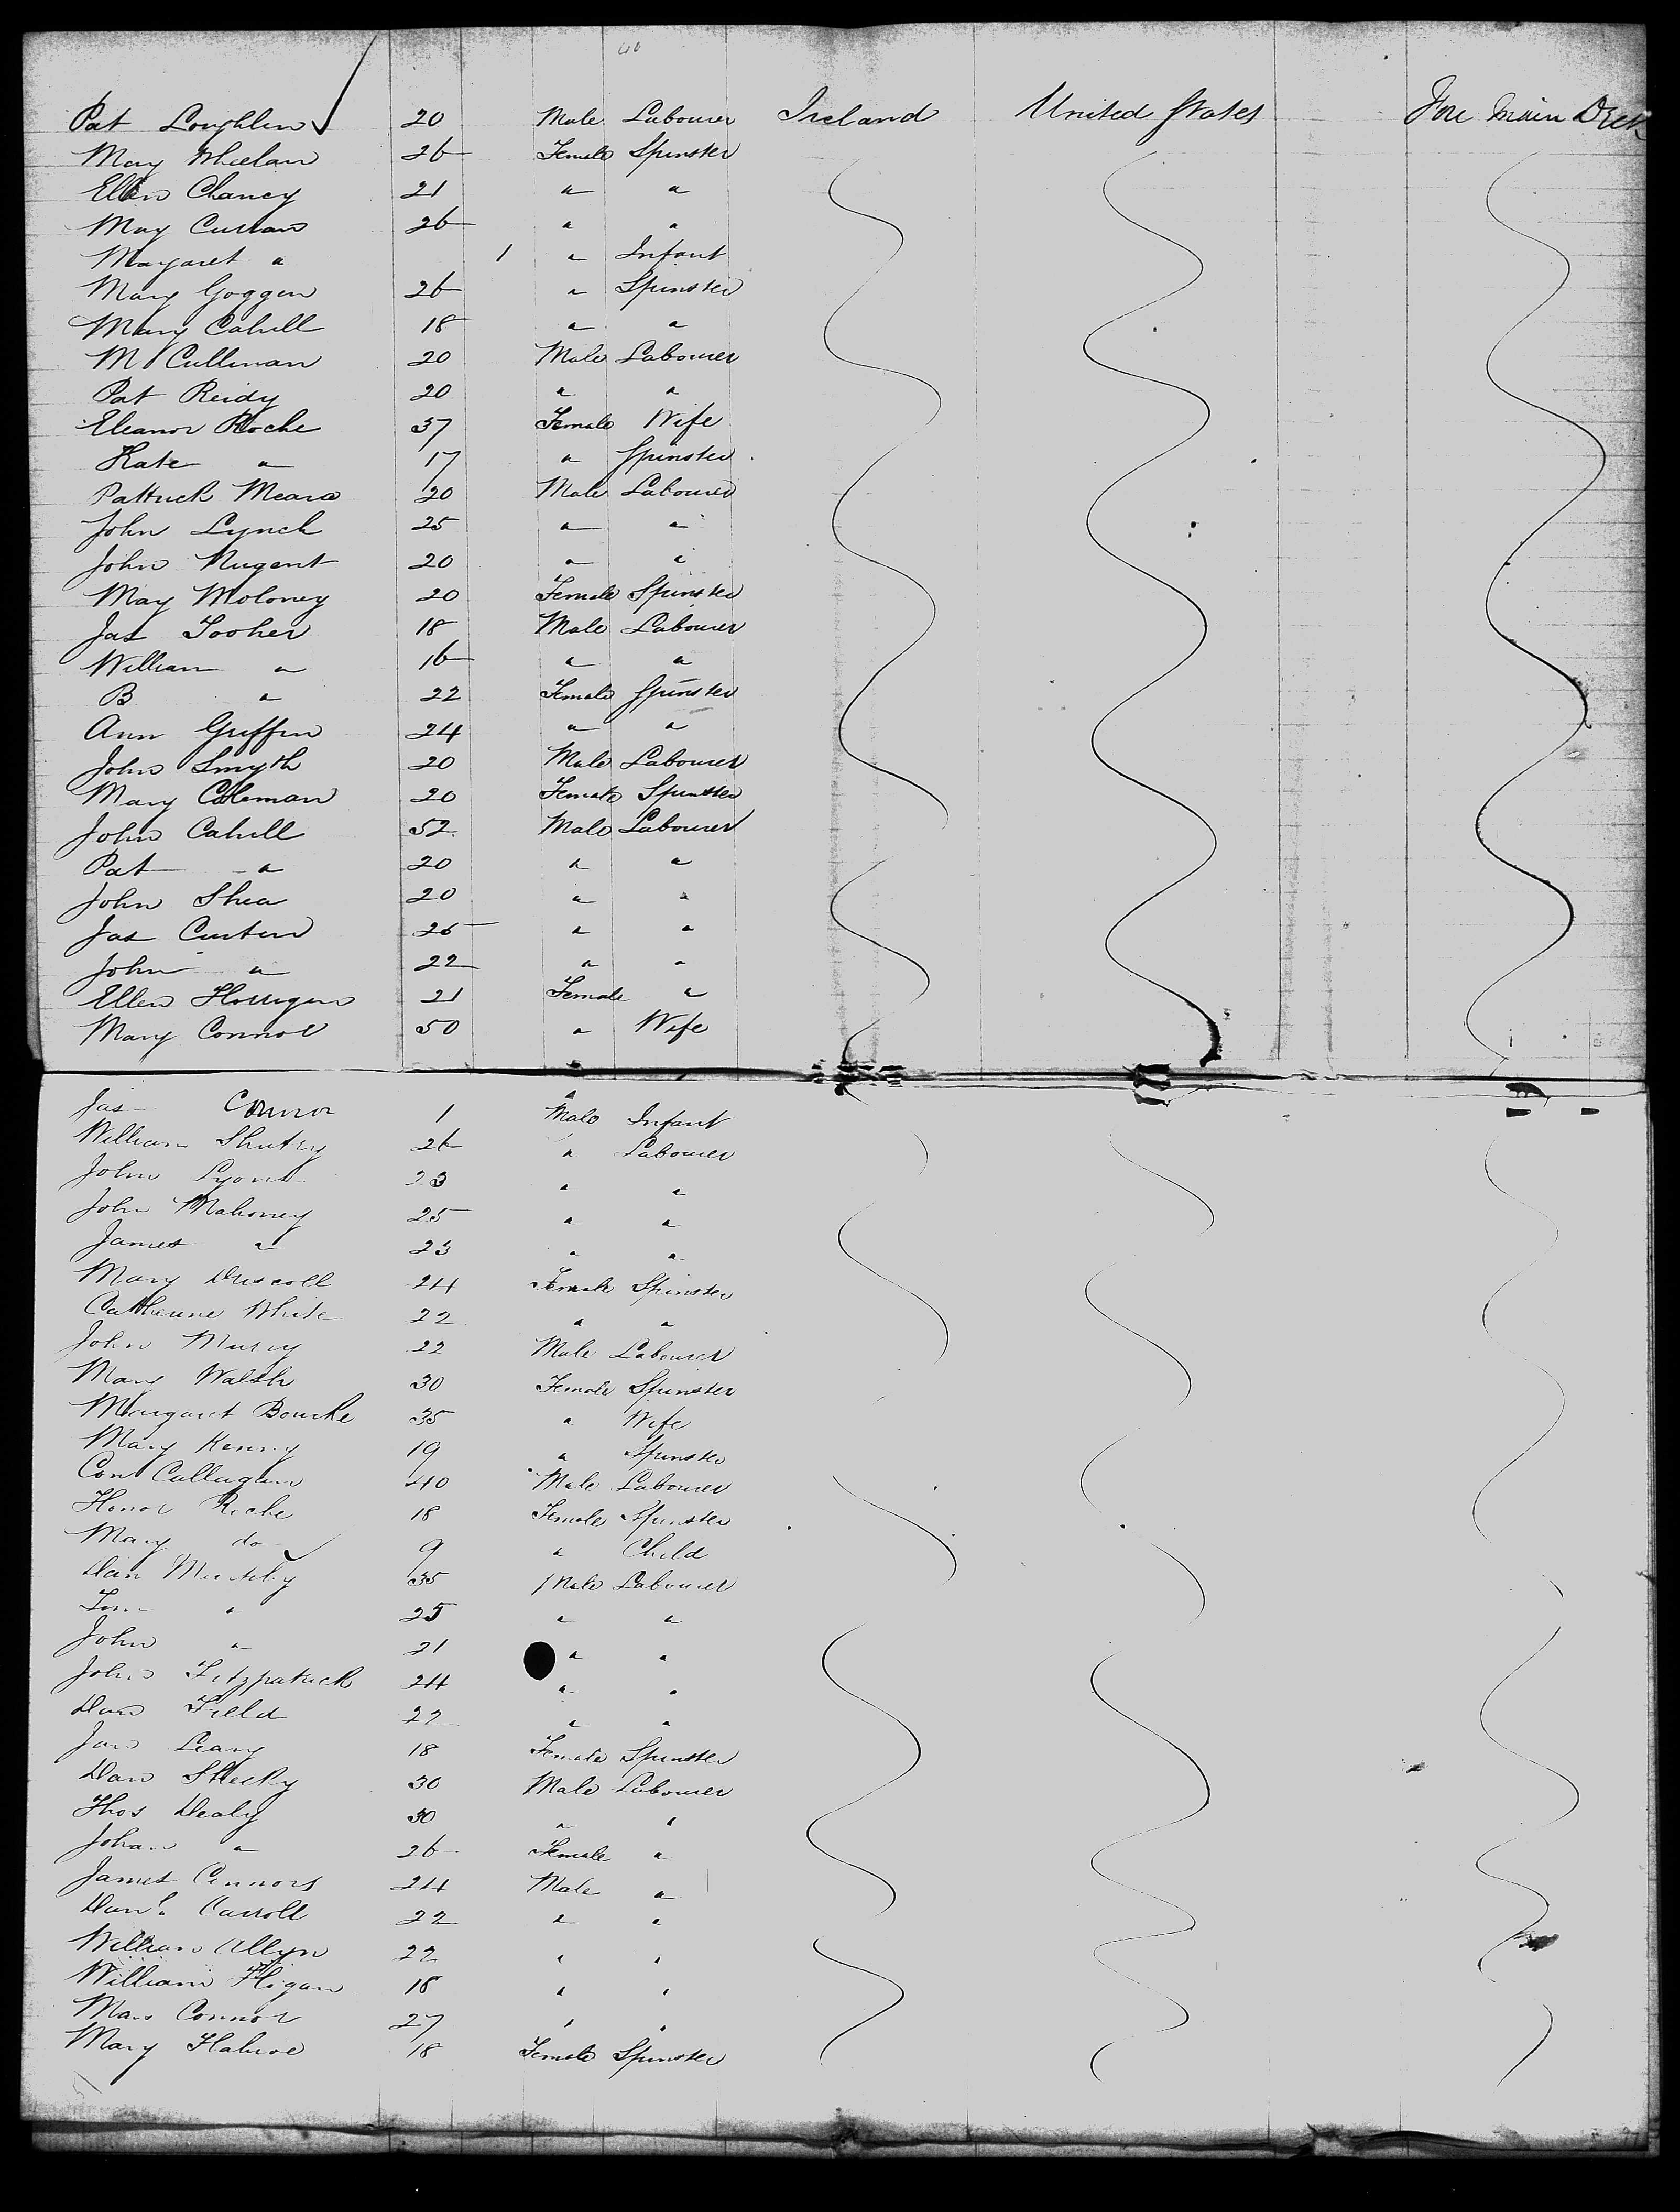 40
Pat Loughlin 20 Male Labourer Ireland United States Fore Main Deck
Mary Wheelan 26 Female Spinster
Ellen Clancy 21 " "
May Curran 26 " "
Margaret " 1 " Infant
Mary Goggen 26 " Spinster
Mary Cahill 18 " "
M Cullinan 20 Male Labourer
Pat Reidy 20 " "
Eleanor Roche 37 Female Wife
Kate " 17 " Spinster
Pattrick Meara 20 Male Labourer
John Lynch 25 " "
John Nugent 20 " "
May Moloney 20 Female Spinster
Jas Tooher 18 Male Labourer
William " 16 " "
B " 22 Female Spinster
Ann Griffin 24 " "
John Smyth 20 Male Labourer
Mary Coleman 20 Female Spinster
John Cahill 52 Male Labourer
Pat " 20 " "
John Shea 20 " "
Jas Curtin 25 " "
John " 22 " "
Ellen Horrigan 21 Female "
Mary Connor 50 " Wife
Jas Connor 1 Male Infant
William 26 " Labourer
John Lyons 23 " "
John Mahoney 25 " "
James " 23 " "
Mary Driscoll 24 Female Spinster
Catherine White 22 " "
John 22 Male Labourer
Mary Walsh 30 Female Spinster
Margaret Bourke 35 " Wife
Mary Kenny 19 " Spinster
Con Callagan 40 Male Labourer
Honor Roche 18 Female Spinster
Mary do 9 " Child
Dan 35 Male Labourer
" 25 " "
John " 21 " "
John Fitzpatrick 24 " "
Dan Field 22 " "
Leary 18 Female Spinster
Dan Sheehy 30 Male Labourer
Thos Dealy 30 " "
" 26 Female "
James Connors 24 Male "
Danl Carroll 22 " "
William Allyn 22 " "
William Hogan 18 " "
Connor 27 " "
Mary 18 Female Spinster